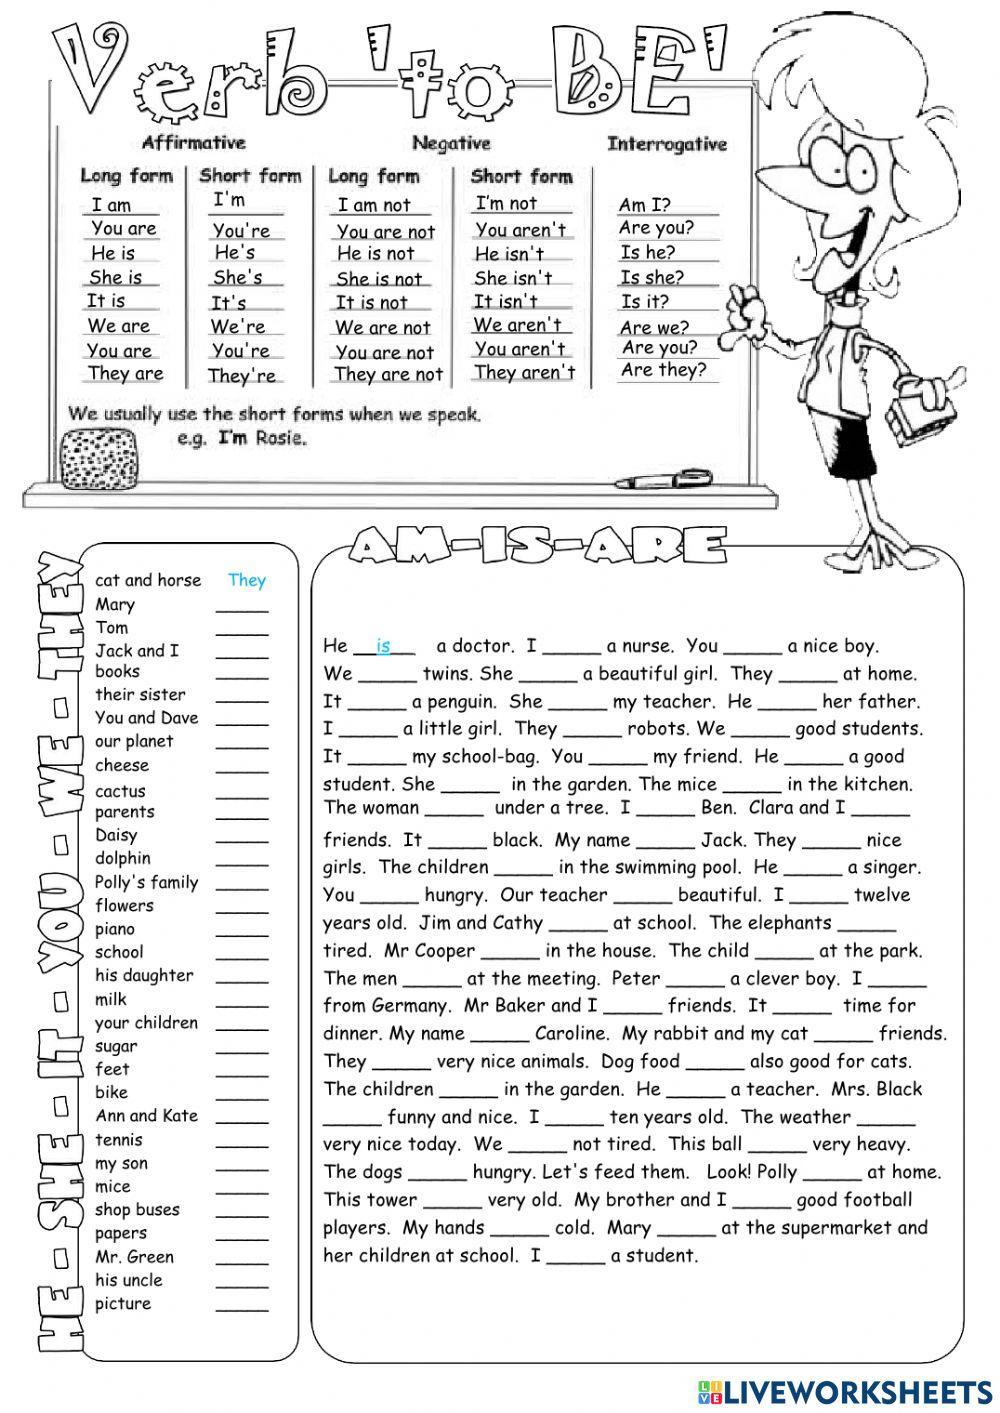 Verb 'to BE'
Affirmative Negative Interrogative
Long form Short form Long form Short form
I am I'm I am not I'm not Am I?
You are You're You are not You aren't Are you?
He is He's He is not He isn't Is he?
She is She's She is not She isn't Is she?
It is It's It is not It isn't Is it?
We are We're We are not We aren't Are we?
You are You're You are not You aren't Are you?
They are They're They are not They aren't Are they?
We usually use the short forms when we speak.
e.g. I'm Rosie.
HE - SHE - IT - YOU - WE - THEY
cat and horse They
Mary ______
Tom ______
Jack and I ______
books ______
their sister ______
You and Dave ______
our planet ______
cheese ______
cactus ______
parents ______
Daisy ______
dolphin ______
Polly's family ______
flowers ______
piano ______
school ______
his daughter ______
milk ______
your children ______
sugar ______
feet ______
bike ______
Ann and Kate ______
tennis ______
my son ______
mice ______
shop buses ______
papers ______
Mr. Green ______
his uncle ______
picture ______
AM-IS-ARE
He __is__ a doctor. I ______ a nurse. You ______ a nice boy.
We ______ twins. She ______ a beautiful girl. They ______ at home.
It ______ a penguin. She ______ my teacher. He ______ her father.
I ______ a little girl. They ______ robots. We ______ good students.
It ______ my school-bag. You ______ my friend. He ______ a good
student. She ______ in the garden. The mice ______ in the kitchen.
The woman ______ under a tree. I ______ Ben. Clara and I ______
friends. It ______ black. My name ______ Jack. They ______ nice
girls. The children ______ in the swimming pool. He ______ a singer.
You ______ hungry. Our teacher ______ beautiful. I ______ twelve
years old. Jim and Cathy ______ at school. The elephants ______
tired. Mr Cooper ______ in the house. The child ______ at the park.
The men ______ at the meeting. Peter ______ a clever boy. I ______
from Germany. Mr Baker and I ______ friends. It ______ time for
dinner. My name ______ Caroline. My rabbit and my cat ______ friends.
They ______ very nice animals. Dog food ______ also good for cats.
The children ______ in the garden. He ______ a teacher. Mrs. Black
______ funny and nice. I ______ ten years old. The weather ______
very nice today. We ______ not tired. This ball ______ very heavy.
The dogs ______ hungry. Let's feed them. Look! Polly ______ at home.
This tower ______ very old. My brother and I ______ good football
players. My hands ______ cold. Mary ______ at the supermarket and
her children at school. I ______ a student.
LIVE LIVEWORKSHEETS